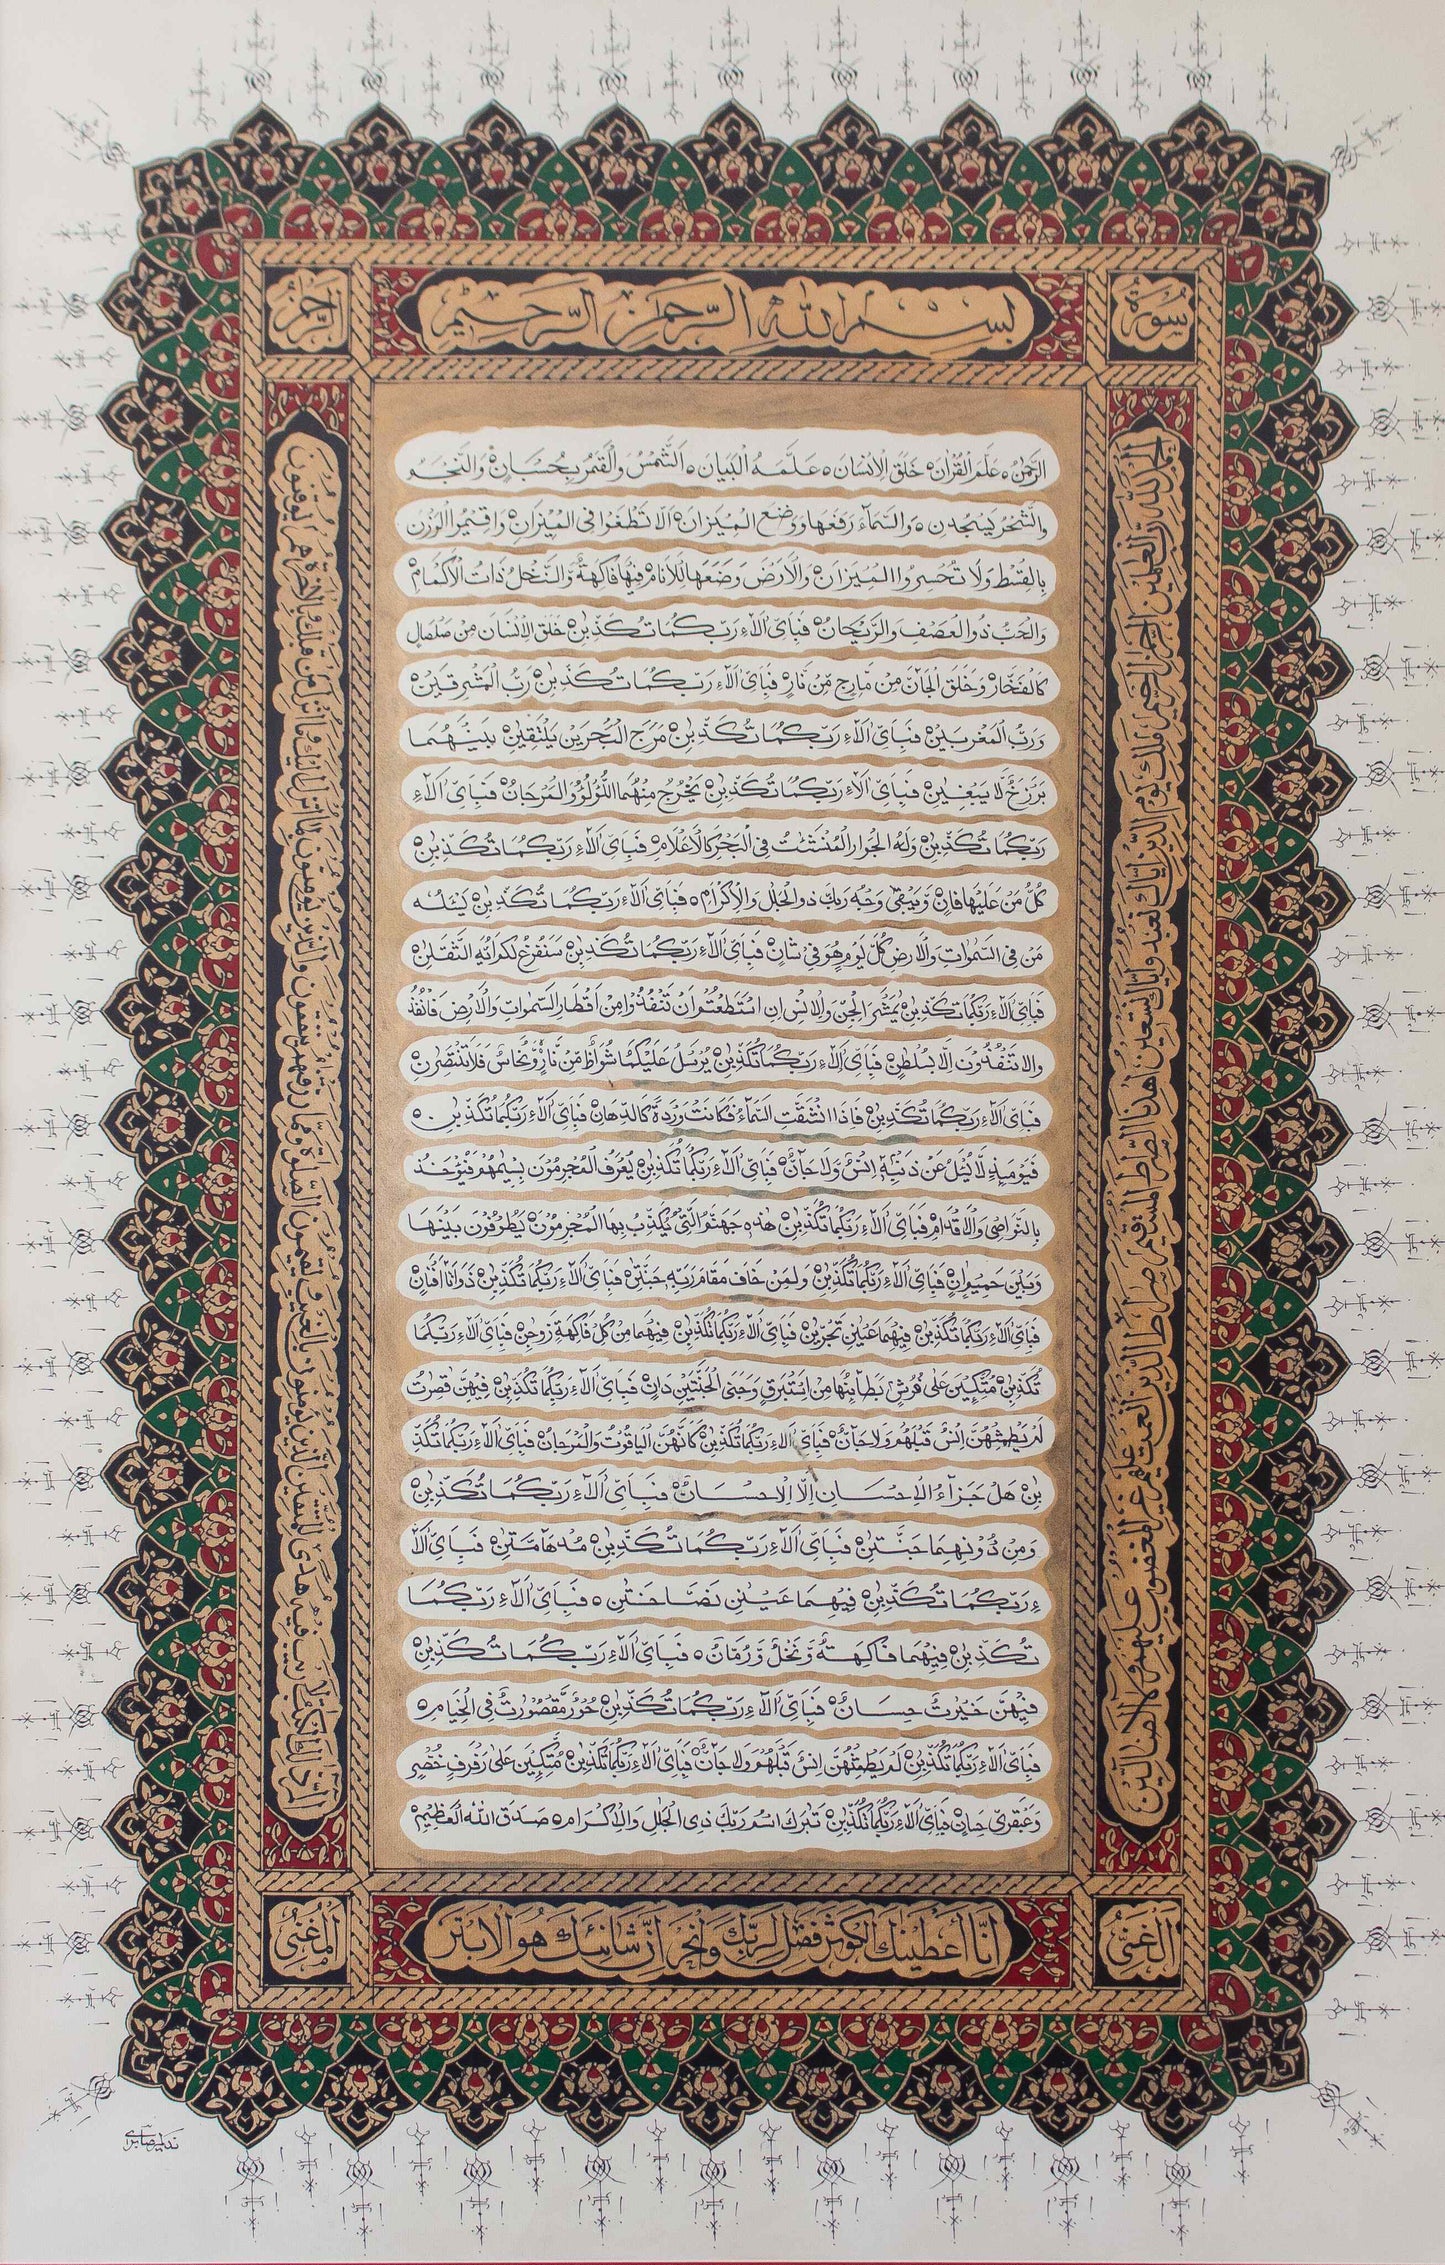 سُورَة
بِسْمِ اللهِ الرَّحْمٰنِ الرَّحِيْمِ
الرَّحْمٰن
اَلْحَمْدُ لِلّٰهِ رَبِّ الْعٰلَمِيْنَ الرَّحْمٰنِ الرَّحِيْمِ مٰلِكِ يَوْمِ الدِّيْنِ اِيَّاكَ نَعْبُدُ وَاِيَّاكَ نَسْتَعِيْنُ اِهْدِنَا الصِّرَاطَ الْمُسْتَقِيْمَ صِرَاطَ الَّذِيْنَ اَنْعَمْتَ عَلَيْهِمْ غَيْرِ الْمَغْضُوْبِ عَلَيْهِمْ وَلَا الضَّآلِّيْنَ
الرَّحْمٰنُ ٥ عَلَّمَ الْقُرْاٰنَ ٥ خَلَقَ الْاِنْسَانَ ٥ عَلَّمَهُ الْبَيَانَ ٥ اَلشَّمْسُ وَالْقَمَرُ بِحُسْبَانٍ ٥ وَالنَّجْمُ
وَالشَّجَرُ يَسْجُدٰنِ ٥ وَالسَّمَآءَ رَفَعَهَا وَوَضَعَ الْمِيْزَانَ ٥ اَلَّا تَطْغَوْا فِى الْمِيْزَانِ ٥ وَاَقِيْمُوا الْوَزْنَ
بِالْقِسْطِ وَلَا تُخْسِرُوا الْمِيْزَانَ ٥ وَالْاَرْضَ وَضَعَهَا لِلْاَنَامِ ٥ فِيْهَا فَاكِهَةٌ وَّالنَّخْلُ ذَاتُ الْاَكْمَامِ ٥
وَالْحَبُّ ذُو الْعَصْفِ وَالرَّيْحَانُ ٥ فَبِاَىِّ اٰلَآءِ رَبِّكُمَا تُكَذِّبٰنِ ٥ خَلَقَ الْاِنْسَانَ مِنْ صَلْصَالٍ
كَالْفَخَّارِ ٥ وَخَلَقَ الْجَآنَّ مِنْ مَّارِجٍ مِّنْ نَّارٍ ٥ فَبِاَىِّ اٰلَآءِ رَبِّكُمَا تُكَذِّبٰنِ ٥ رَبُّ الْمَشْرِقَيْنِ ٥
وَرَبُّ الْمَغْرِبَيْنِ ٥ فَبِاَىِّ اٰلَآءِ رَبِّكُمَا تُكَذِّبٰنِ ٥ مَرَجَ الْبَحْرَيْنِ يَلْتَقِيٰنِ ٥ بَيْنَهُمَا
بَرْزَخٌ لَّا يَبْغِيٰنِ ٥ فَبِاَىِّ اٰلَآءِ رَبِّكُمَا تُكَذِّبٰنِ ٥ يَخْرُجُ مِنْهُمَا اللُّؤْلُؤُ وَالْمَرْجَانُ ٥ فَبِاَىِّ اٰلَآءِ
رَبِّكُمَا تُكَذِّبٰنِ ٥ وَلَهُ الْجَوَارِ الْمُنْشَئٰتُ فِى الْبَحْرِ كَالْاَعْلَامِ ٥ فَبِاَىِّ اٰلَآءِ رَبِّكُمَا تُكَذِّبٰنِ ٥
كُلُّ مَنْ عَلَيْهَا فَانٍ ٥ وَّيَبْقٰى وَجْهُ رَبِّكَ ذُو الْجَلٰلِ وَالْاِكْرَامِ ٥ فَبِاَىِّ اٰلَآءِ رَبِّكُمَا تُكَذِّبٰنِ ٥ يَسْئَلُهُ
مَنْ فِى السَّمٰوَاتِ وَالْاَرْضِ كُلَّ يَوْمٍ هُوَ فِىْ شَاْنٍ ٥ فَبِاَىِّ اٰلَآءِ رَبِّكُمَا تُكَذِّبٰنِ ٥ سَنَفْرُغُ لَكُمْ اَيُّهَ الثَّقَلٰنِ ٥
فَبِاَىِّ اٰلَآءِ رَبِّكُمَا تُكَذِّبٰنِ ٥ يٰمَعْشَرَ الْجِنِّ وَالْاِنْسِ اِنِ اسْتَطَعْتُمْ اَنْ تَنْفُذُوْا مِنْ اَقْطَارِ السَّمٰوَاتِ وَالْاَرْضِ فَانْفُذُ
والا تَنْفُذُوْنَ اِلَّا بِسُلْطٰنٍ ٥ فَبِاَىِّ اٰلَآءِ رَبِّكُمَا تُكَذِّبٰنِ ٥ يُرْسَلُ عَلَيْكُمَا شُوَاظٌ مِّنْ نَّارٍ وَّنُحَاسٌ فَلَا تَنْتَصِرٰنِ ٥
فَبِاَىِّ اٰلَآءِ رَبِّكُمَا تُكَذِّبٰنِ ٥ فَاِذَا انْشَقَّتِ السَّمَآءُ فَكَانَتْ وَرْدَةً كَالدِّهَانِ ٥ فَبِاَىِّ اٰلَآءِ رَبِّكُمَا تُكَذِّبٰنِ ٥
فَيَوْمَئِذٍ لَّا يُسْئَلُ عَنْ ذَنْبِهٖ اِنْسٌ وَّلَا جَآنٌّ ٥ فَبِاَىِّ اٰلَآءِ رَبِّكُمَا تُكَذِّبٰنِ ٥ يُعْرَفُ الْمُجْرِمُوْنَ بِسِيْمٰهُمْ فَيُؤْخَذُ
بِالنَّوَاصِىْ وَالْاَقْدَامِ ٥ فَبِاَىِّ اٰلَآءِ رَبِّكُمَا تُكَذِّبٰنِ ٥ هٰذِهٖ جَهَنَّمُ الَّتِىْ يُكَذِّبُ بِهَا الْمُجْرِمُوْنَ ٥ يَطُوْفُوْنَ بَيْنَهَا
وَبَيْنَ حَمِيْمٍ اٰنٍ ٥ فَبِاَىِّ اٰلَآءِ رَبِّكُمَا تُكَذِّبٰنِ ٥ وَلِمَنْ خَافَ مَقَامَ رَبِّهٖ جَنَّتٰنِ ٥ فَبِاَىِّ اٰلَآءِ رَبِّكُمَا تُكَذِّبٰنِ ٥ ذَوَاتَا اَفْنَانٍ
فَبِاَىِّ اٰلَآءِ رَبِّكُمَا تُكَذِّبٰنِ ٥ فِيْهِمَا عَيْنٰنِ تَجْرِيٰنِ ٥ فَبِاَىِّ اٰلَآءِ رَبِّكُمَا تُكَذِّبٰنِ ٥ فِيْهِمَا مِنْ كُلِّ فَاكِهَةٍ زَوْجٰنِ ٥ فَبِاَىِّ اٰلَآءِ رَبِّكُمَا
تُكَذِّبٰنِ ٥ مُتَّكِئِيْنَ عَلٰى فُرُشٍ بَطَآئِنُهَا مِنْ اِسْتَبْرَقٍ وَجَنَى الْجَنَّتَيْنِ دَانٍ ٥ فَبِاَىِّ اٰلَآءِ رَبِّكُمَا تُكَذِّبٰنِ ٥ فِيْهِنَّ قٰصِرٰتُ
لَمْ يَطْمِثْهُنَّ اِنْسٌ قَبْلَهُمْ وَلَا جَآنٌّ ٥ فَبِاَىِّ اٰلَآءِ رَبِّكُمَا تُكَذِّبٰنِ ٥ كَاَنَّهُنَّ الْيَاقُوْتُ وَالْمَرْجَانُ ٥ فَبِاَىِّ اٰلَآءِ رَبِّكُمَا تُكَذِّ
بٰنِ ٥ هَلْ جَزَآءُ الْاِحْسَانِ اِلَّا الْاِحْسَانُ ٥ فَبِاَىِّ اٰلَآءِ رَبِّكُمَا تُكَذِّبٰنِ ٥
وَمِنْ دُوْنِهِمَا جَنَّتٰنِ ٥ فَبِاَىِّ اٰلَآءِ رَبِّكُمَا تُكَذِّبٰنِ ٥ مُدْهَآمَّتٰنِ ٥ فَبِاَىِّ اٰلَآ
ءِ رَبِّكُمَا تُكَذِّبٰنِ ٥ فِيْهِمَا عَيْنٰنِ نَضَّاخَتٰنِ ٥ فَبِاَىِّ اٰلَآءِ رَبِّكُمَا
تُكَذِّبٰنِ ٥ فِيْهِمَا فَاكِهَةٌ وَّنَخْلٌ وَّرُمَّانٌ ٥ فَبِاَىِّ اٰلَآءِ رَبِّكُمَا تُكَذِّبٰنِ ٥
فِيْهِنَّ خَيْرٰتٌ حِسَانٌ ٥ فَبِاَىِّ اٰلَآءِ رَبِّكُمَا تُكَذِّبٰنِ ٥ حُوْرٌ مَّقْصُوْرٰتٌ فِى الْخِيَامِ ٥
فَبِاَىِّ اٰلَآءِ رَبِّكُمَا تُكَذِّبٰنِ ٥ لَمْ يَطْمِثْهُنَّ اِنْسٌ قَبْلَهُمْ وَلَا جَآنٌّ ٥ فَبِاَىِّ اٰلَآءِ رَبِّكُمَا تُكَذِّبٰنِ ٥ مُتَّكِئِيْنَ عَلٰى رَفْرَفٍ خُضْرٍ
وَّعَبْقَرِىٍّ حِسَانٍ ٥ فَبِاَىِّ اٰلَآءِ رَبِّكُمَا تُكَذِّبٰنِ ٥ تَبٰرَكَ اسْمُ رَبِّكَ ذِى الْجَلٰلِ وَالْاِكْرَامِ ٥ صَدَقَ اللهُ الْعَظِيْمُ
الٓمّٓ ذٰلِكَ الْكِتٰبُ لَا رَيْبَ فِيْهِ هُدًى لِّلْمُتَّقِيْنَ الَّذِيْنَ يُؤْمِنُوْنَ بِالْغَيْبِ وَيُقِيْمُوْنَ الصَّلٰوةَ وَمِمَّا رَزَقْنٰهُمْ يُنْفِقُوْنَ وَالَّذِيْنَ يُؤْمِنُوْنَ بِمَآ اُنْزِلَ اِلَيْكَ وَمَآ اُنْزِلَ مِنْ قَبْلِكَ وَبِالْاٰخِرَةِ هُمْ يُوْقِنُوْنَ
اَلْغَنِىُّ
اِنَّا اَعْطَيْنٰكَ الْكَوْثَرَ فَصَلِّ لِرَبِّكَ وَانْحَرْ اِنَّ شَانِئَكَ هُوَ الْاَبْتَرُ
الْمُغْنِىُ